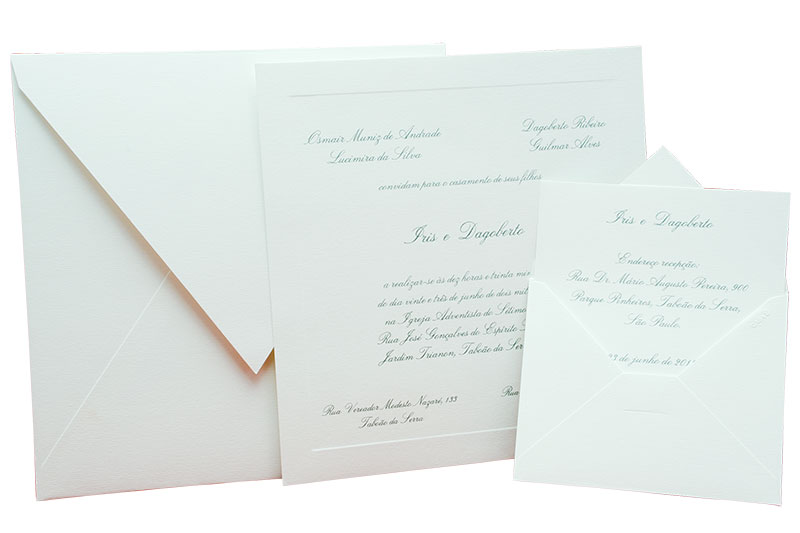 Osmair Muniz de Andrade
Lucimira da Silva
Dagoberto Ribeiro
Guilmar Alves
convidam para o casamento de seus filhos
Iris e Dagoberto
a realizar-se às dez horas e trinta
do dia vinte e três de junho de dois
na Igreja Adventista do Sétimo
Rua José Gonçalves do Espírito
Jardim Trianon, Taboão da
Rua Vereador Modesto Nazaré, 133
Taboão da Serra
Rua
Iris e Dagoberto
Endereço recepção:
Rua Dr. Mário Augusto Pereira, 900
Parque Pinheiros, Taboão da Serra,
São Paulo.
de junho de